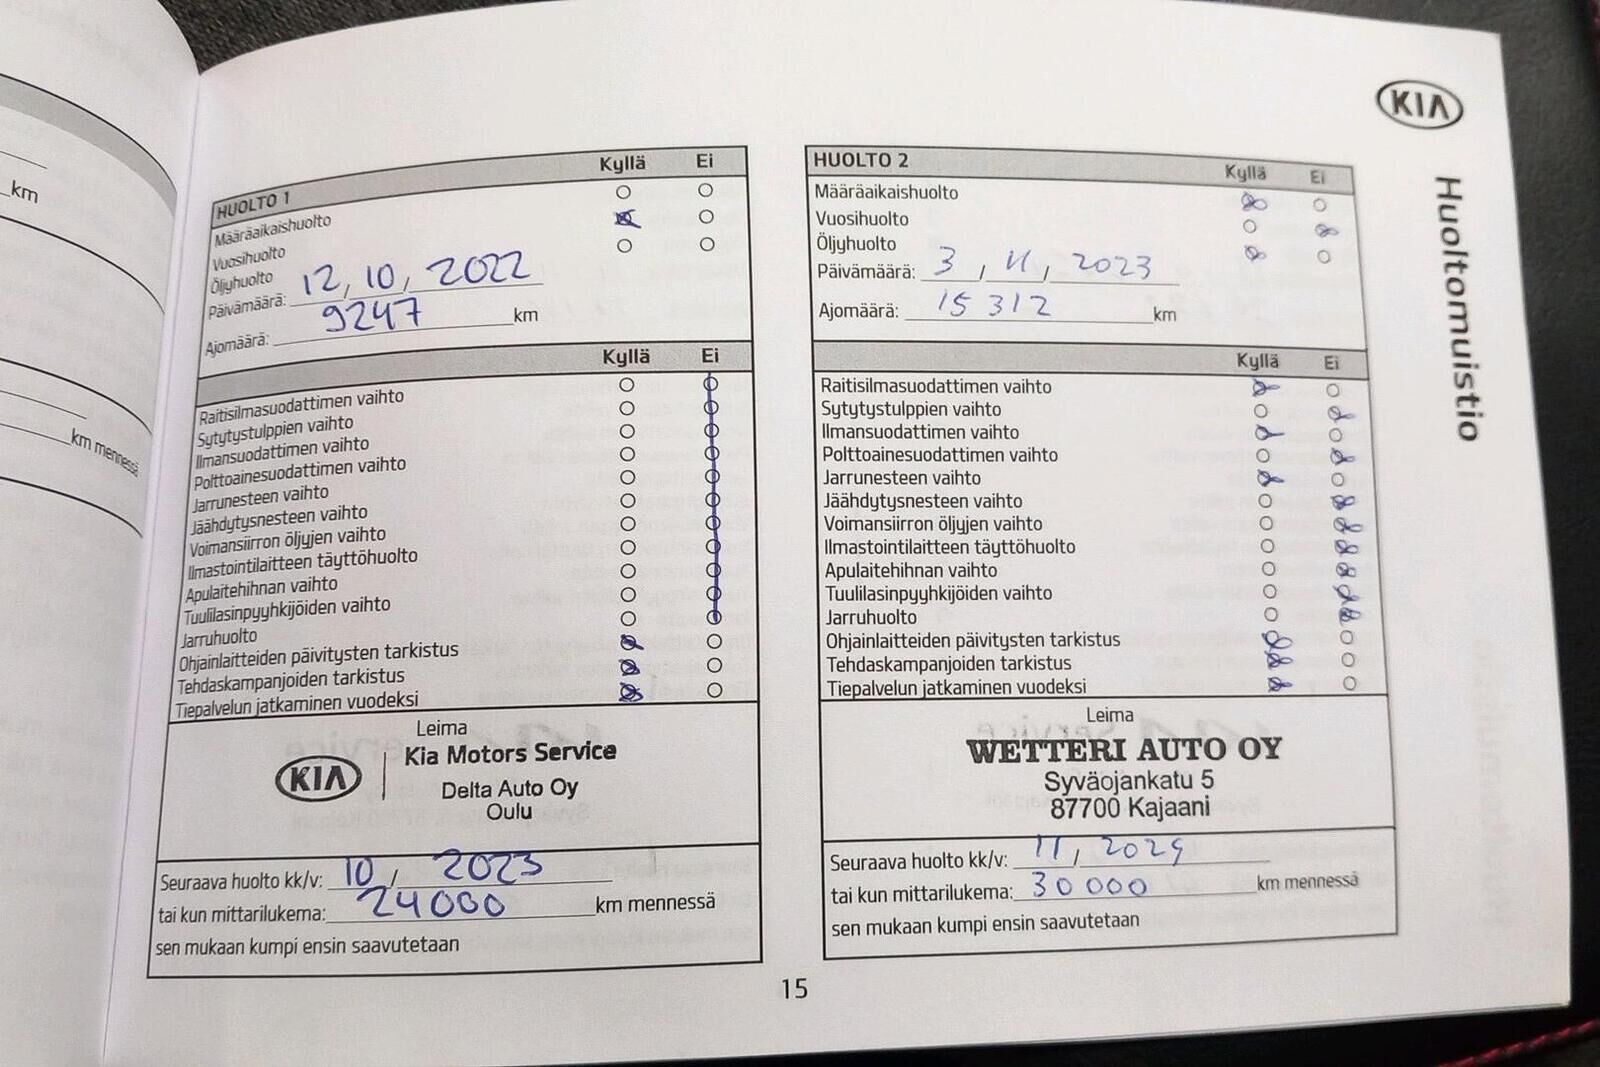 km
km mennessä
KIA
Huoltomuistio
HUOLTO 1 Kyllä Ei
Määräaikaishuolto
Vuosihuolto
Öljyhuolto
Päivämäärä: 12, 10, 2022
Ajomäärä: 9247 km
Kyllä Ei
Raitisilmasuodattimen vaihto
Sytytystulppien vaihto
Ilmansuodattimen vaihto
Polttoainesuodattimen vaihto
Jarrunesteen vaihto
Jäähdytysnesteen vaihto
Voimansiirron öljyjen vaihto
Ilmastointilaitteen täyttöhuolto
Apulaitehihnan vaihto
Tuulilasinpyyhkijöiden vaihto
Jarruhuolto
Ohjainlaitteiden päivitysten tarkistus
Tehdaskampanjoiden tarkistus
Tiepalvelun jatkaminen vuodeksi
Leima
KIA
Kia Motors Service
Delta Auto Oy
Oulu
Seuraava huolto kk/v: 10 / 2023
tai kun mittarilukema: 24000 km mennessä
sen mukaan kumpi ensin saavutetaan
HUOLTO 2 Kyllä Ei
Määräaikaishuolto
Vuosihuolto
Öljyhuolto
Päivämäärä: 3 , 11 , 2023
Ajomäärä: 15 312 km
Kyllä Ei
Raitisilmasuodattimen vaihto
Sytytystulppien vaihto
Ilmansuodattimen vaihto
Polttoainesuodattimen vaihto
Jarrunesteen vaihto
Jäähdytysnesteen vaihto
Voimansiirron öljyjen vaihto
Ilmastointilaitteen täyttöhuolto
Apulaitehihnan vaihto
Tuulilasinpyyhkijöiden vaihto
Jarruhuolto
Ohjainlaitteiden päivitysten tarkistus
Tehdaskampanjoiden tarkistus
Tiepalvelun jatkaminen vuodeksi
Leima
WETTERI AUTO OY
Syväojankatu 5
87700 Kajaani
Seuraava huolto kk/v: 11 / 2024
tai kun mittarilukema: 30 000 km mennessä
sen mukaan kumpi ensin saavutetaan
15